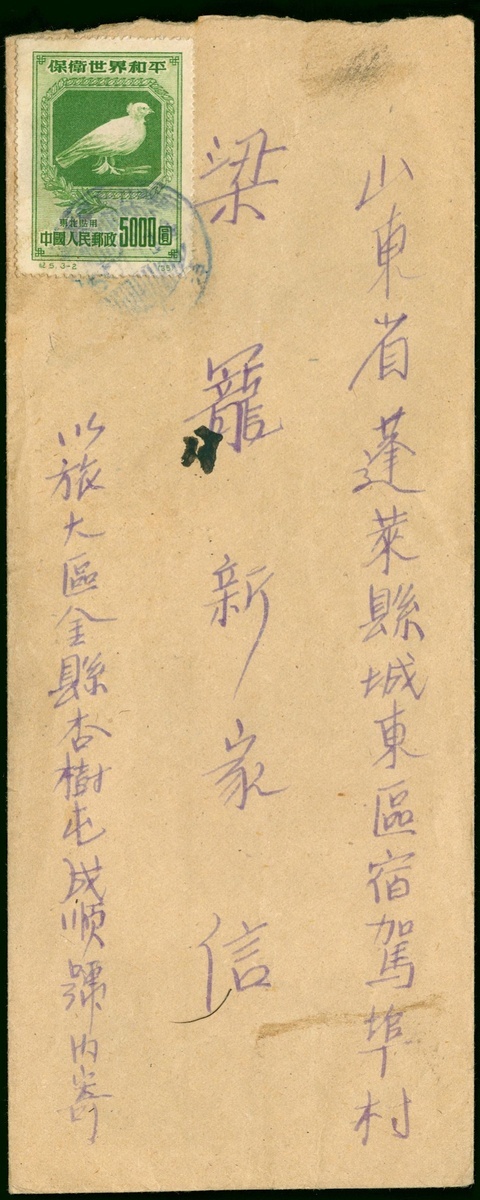 山東省蓬萊縣城東區宿駕埠村
梁寵新家信
以旅大區金縣杏樹屯成順號內寄
保衛世界和平
東北貼用
中國人民郵政5000圓
紀5.3-2